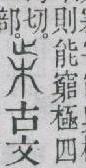 則能窮極四
切。
部。
𣏔古文